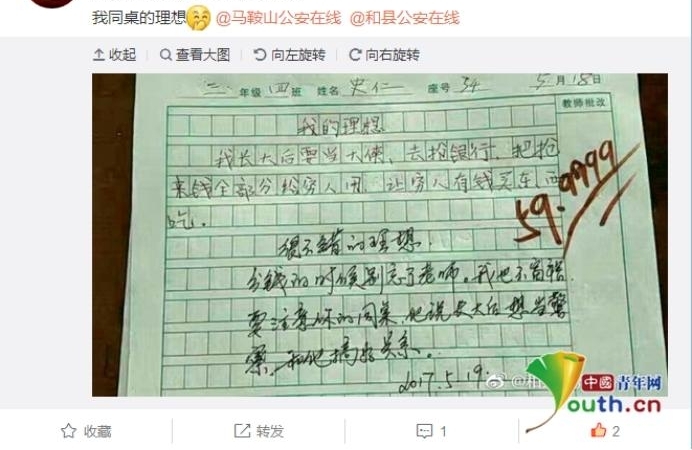 我同桌的理想 @马鞍山公安在线 @和县公安在线
收起 查看大图 向左旋转 向右旋转
三 年级 四 班 姓名 史仁 座号 34 5月18日
教师批改
我的理想
我长大后要当大侠、去抢银行、把抢
来钱全部分给穷人用 让穷人有钱买东西
吃.
59.9999
很不错的理想.
分钱的时候别忘了老师。我也不富裕.
要注意你的同桌,他说长大后想当警
察、和他搞好关系。
2017.5.19.
中國青年网
Youth.cn
收藏 转发 1 2